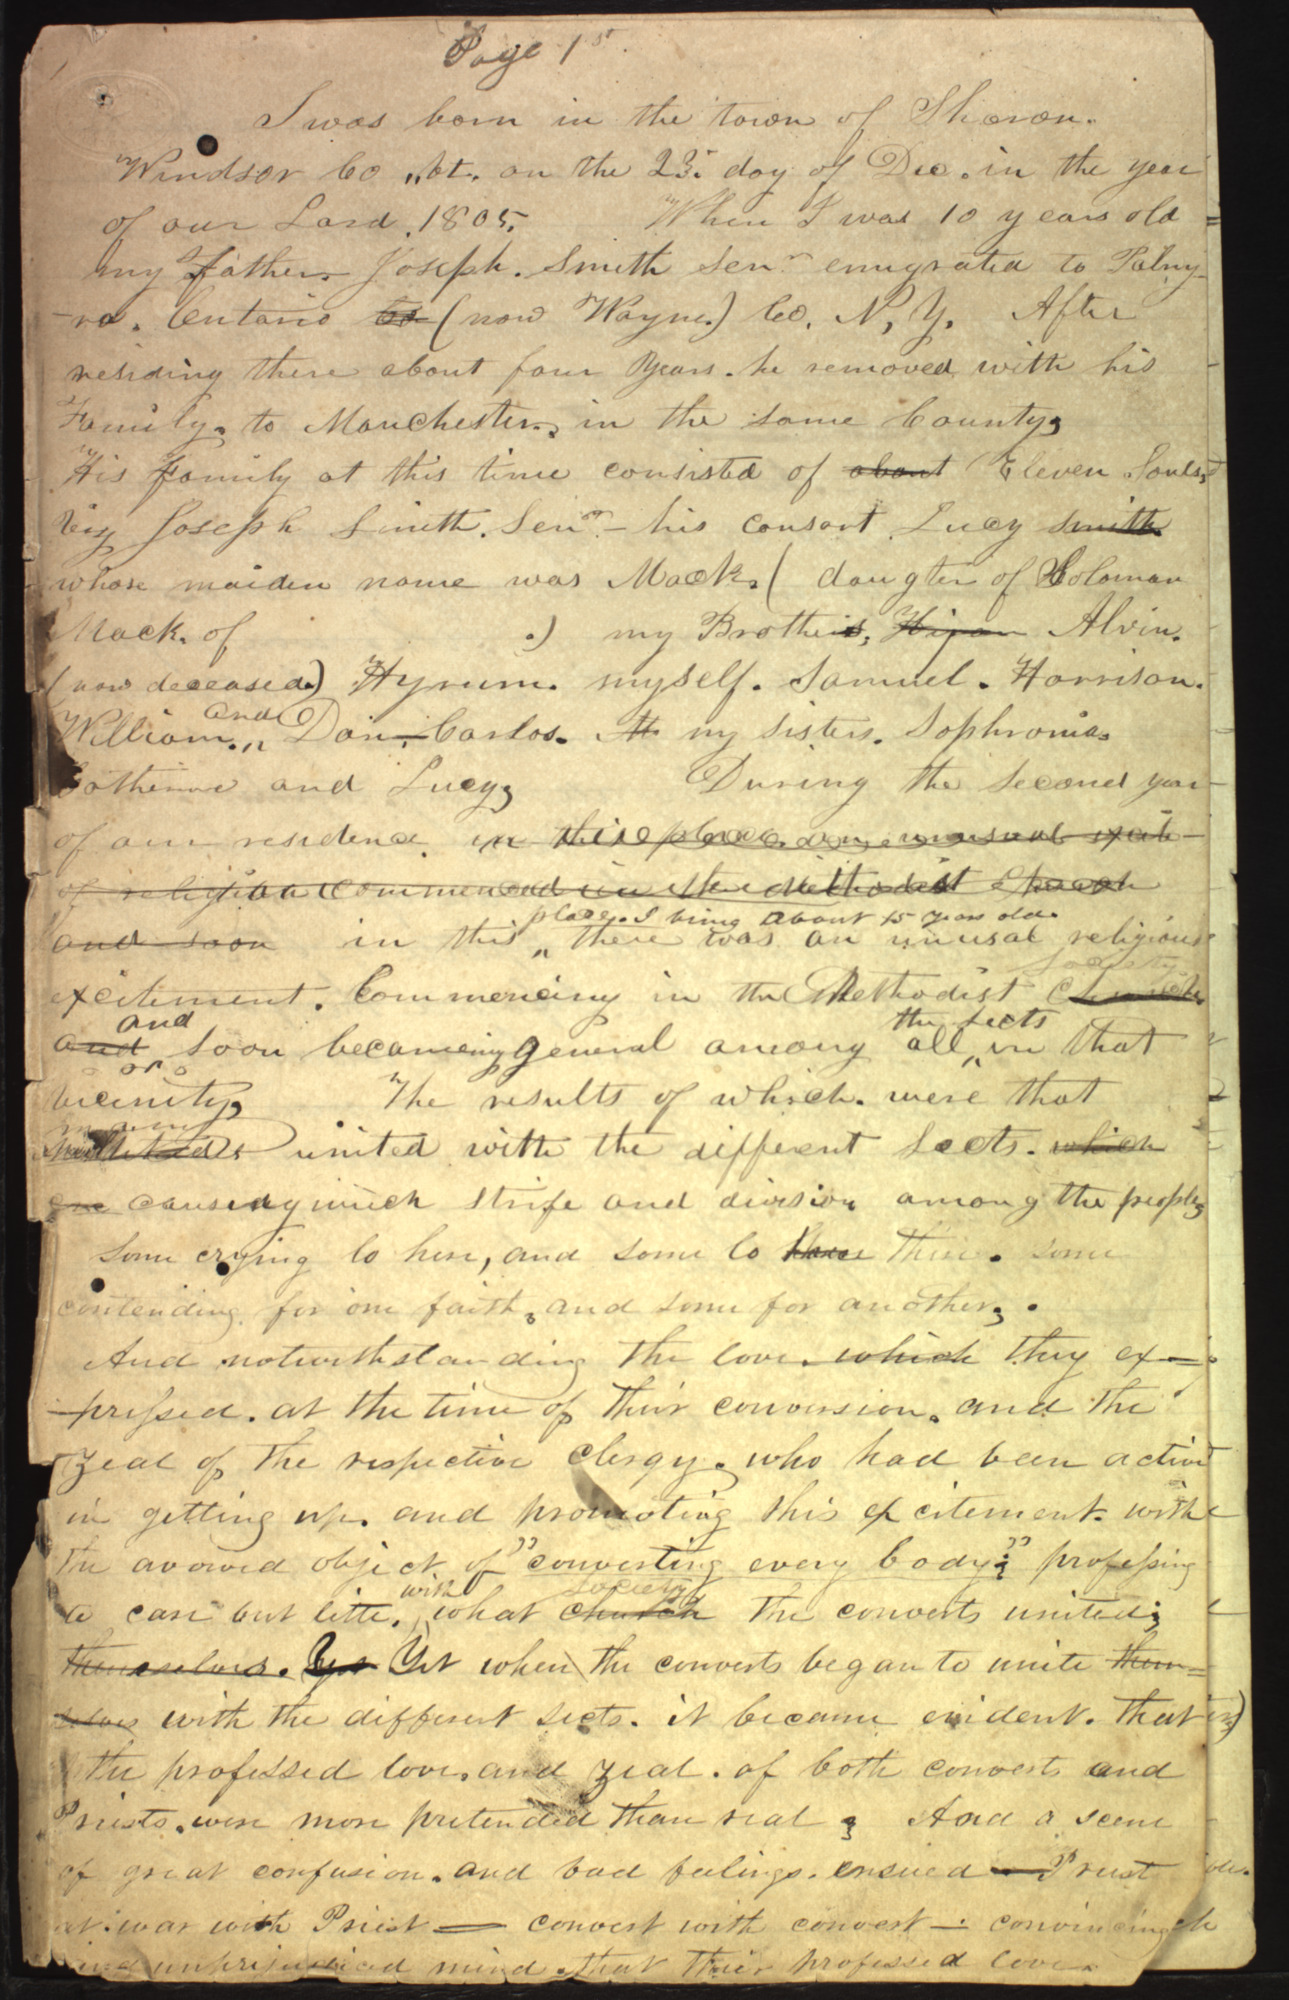 Page 1st
I was born in the town of Sharon.
Windsor Co ,,vt. on the 23. day of Dec. in the year
of our Lord. 1805. When I was 10 years old
my Father. Joseph. Smith Senr. emigrated to Palmy-
-ra. Ontario Co (now Wayne.) Co. N. Y. After
residing there about four Years. he removed with his
Family. to Manchester., in the same County;
His Family at this time consisted of about Eleven Souls,
viz Joseph Smith. Senr.- his consort Lucy Smith
whose maiden name was Mack. ( daugter of Soloman
Mack. of .) my Brothers, Hiram Alvin.
(now deceased.) Hyrum. myself. Samuel. Harrison.
and
William.,, Don, Carlos. my sisters. Sophronia.
Catherine and Lucy; During the Second year
of our residence in this place an unusual excite
of religion commenced in the Methodist Church
place. I being about 15 years old.
and soon in this ,, there was an unusal religious
Society
excitement. Commencing in the Methodist Church
and the sects
and soon becameing general among all ,, in that
vicinity; The results of which. were that
many
multitudes united with the different Sects. which
causeing much strife and division among the people;
Some crying lo here, and some lo there there. some
contending for one faith, and some for another;.
And notwithstanding the love. which they ex-
-pressed. at the time of their conversion. and the
zeal of the respective Clergy. who had been active
in getting up. and promoting this excitement. with
the avowed object of "converting every body;" professing
with society
to care but litte. what church the converts united;
themselves. But Yet when the converts began to unite them-
selves with the different sects. it became evident. that
the professed love. and zeal. of both converts and
Priests. were more pretended than real; And a scene
of great confusion. and bad feelings. ensued — Priest
at war with Priest — convert with convert —: convincing
unprijudiced mind. that their professed love.